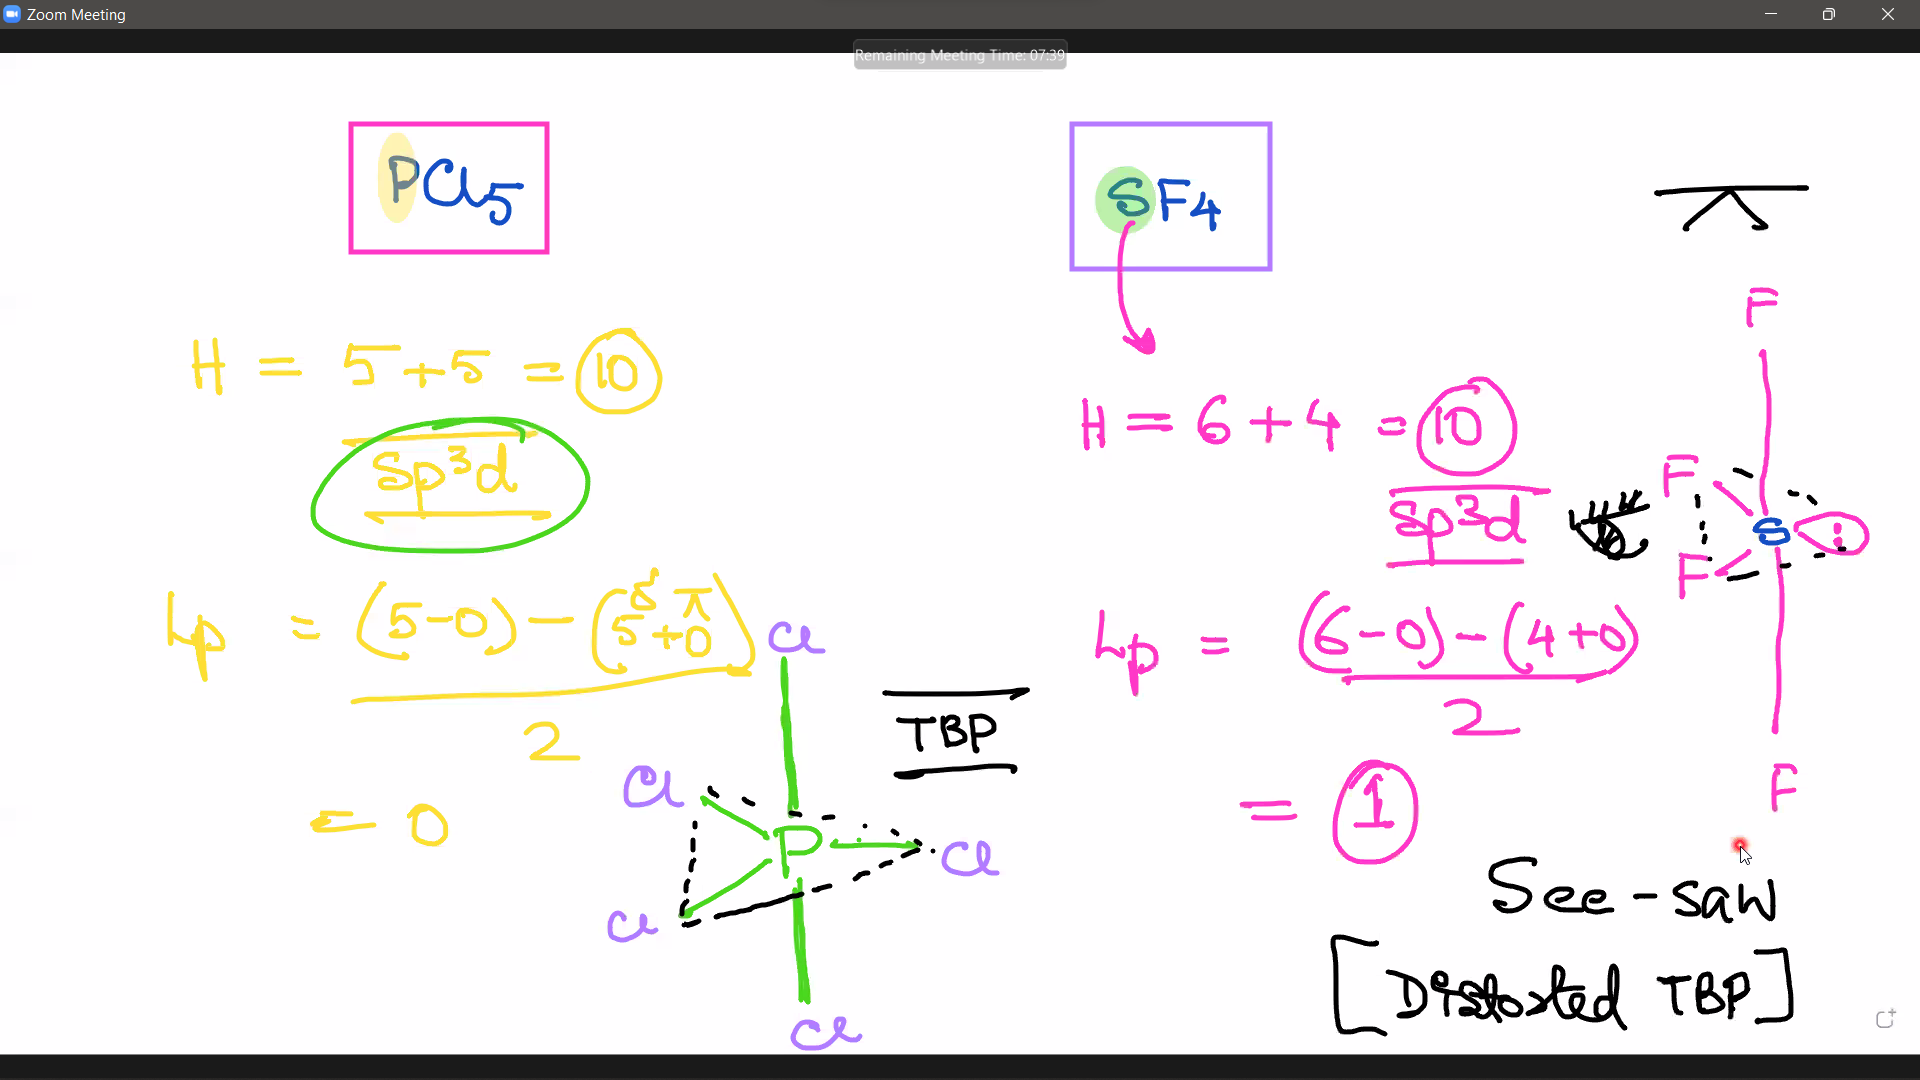 Zoom Meeting
Remaining Meeting Time: 07:39
PCl5
H = 5+5 = 10
sp³d
Lp = (5-0) - (5+0)
5 π
2
= 0
Cl
Cl
P
Cl
Cl
Cl
TBP
SF4
H = 6+4 = 10
sp³d
Lp = (6-0) - (4+0)
2
= 1
F
F
S :
F
F
See-saw
[Distorted TBP]